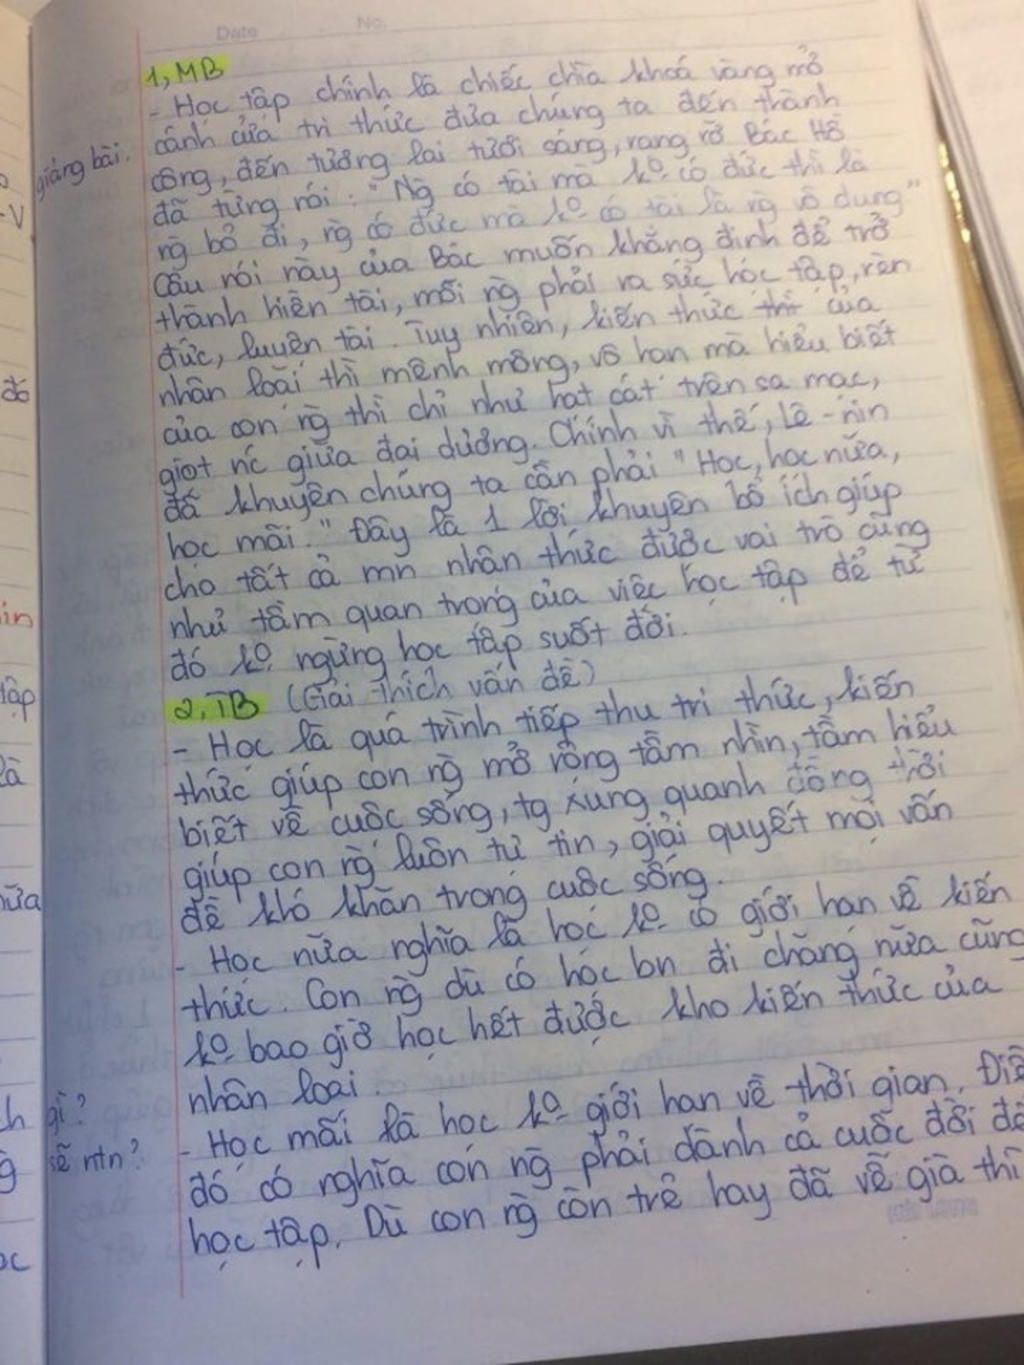 Date No.
1, MB
- Học tập chính là chiếc chìa khoá vàng mở
cánh cửa tri thức đưa chúng ta đến thành
công, đến tương lai tươi sáng, rạng rỡ Bác Hồ
đã từng nói: "Ng̀ có tài mà ko có đức thì là
ng̀ bỏ đi, ng̀ có đức mà ko có tài là ng̀ vô dụng"
Câu nói này của Bác muốn khẳng định để trở
thành hiền tài, mỗi ng̀ phải ra sức học tập, rèn
đức, luyện tài. Tuy nhiên, kiến thức thì của
nhân loại thì mênh mông, vô hạn mà hiểu biết
của con ng̀ thì chỉ như hạt cát trên sa mạc,
giọt nc giữa đại dương. Chính vì thế, Lê-nin
đã khuyên chúng ta cần phải "Học, học nữa,
học mãi." Đây là 1 lời khuyên bổ ích giúp
cho tất cả mn nhận thức được vai trò cũng
như tầm quan trọng của việc học tập để từ
đó ko ngừng học tập suốt đời.
2, TB (Giải thích vấn đề)
- Học là quá trình tiếp thu tri thức, kiến
thức giúp con ng̀ mở rộng tầm nhìn, tầm hiểu
biết về cuộc sống, tg xung quanh đồng thời
giúp con ng̀ luôn tự tin, giải quyết mọi vấn
đề khó khăn trong cuộc sống.
- Học nữa nghĩa là học ko có giới hạn về kiến
thức. Con ng̀ dù có học bn đi chăng nữa cũng
ko bao giờ học hết được kho kiến thức của
nhân loại.
- Học mãi là học ko giới hạn về thời gian. Điề
đó có nghĩa con ng̀ phải dành cả cuộc đời để
học tập. Dù con ng̀ còn trẻ hay đã về già thì
giảng bài.
gì?
sẽ ntn?
-V
đó
in
tập
là
nữa